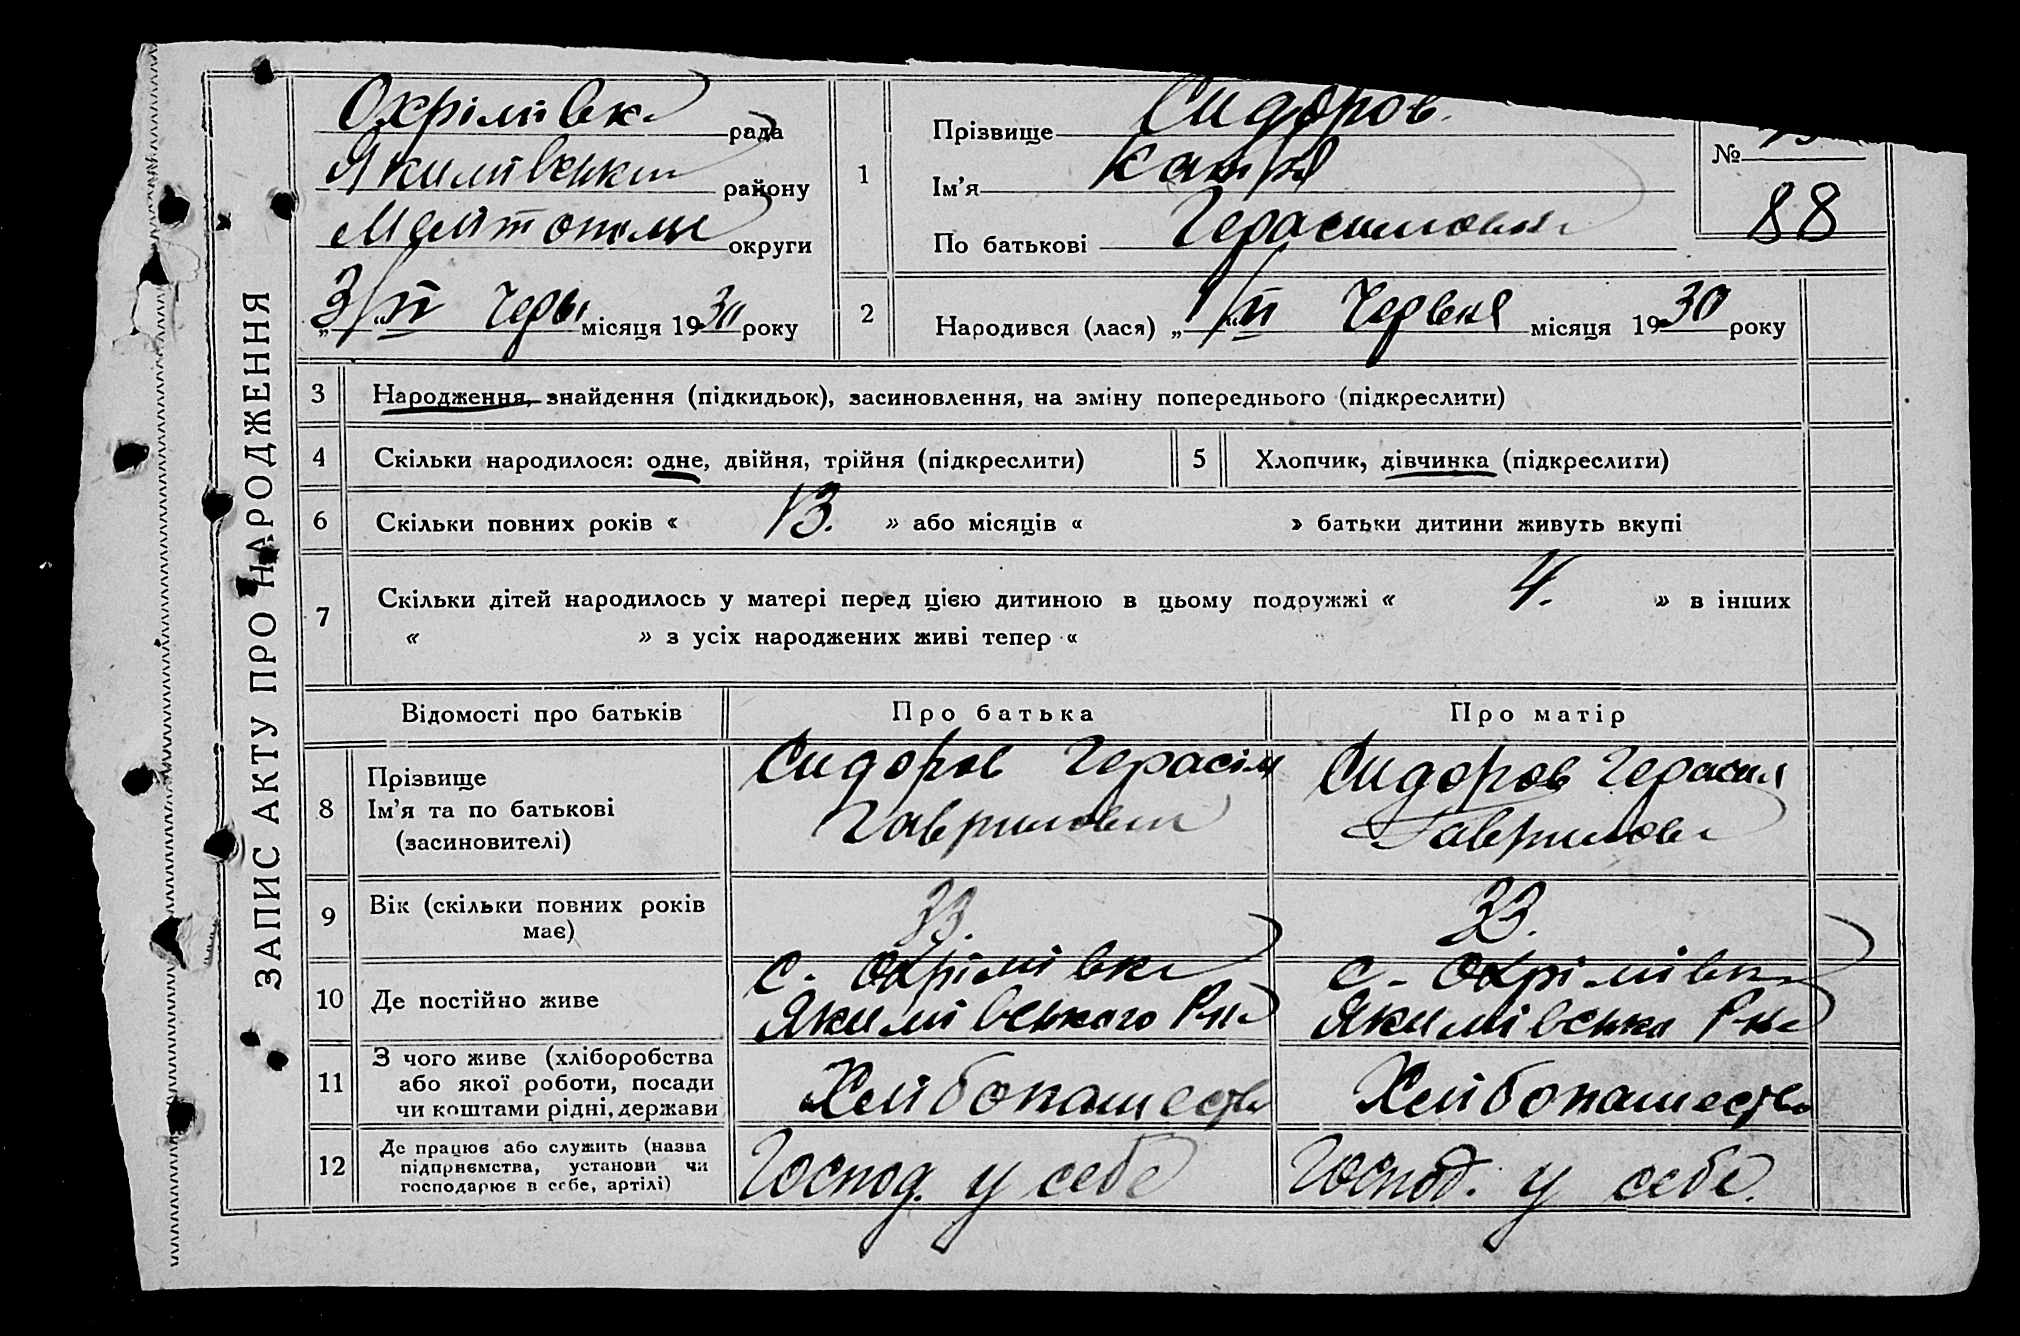 ЗАПИС АКТУ ПРО НАРОДЖЕННЯ
Охрімівка рада
Якимівськ району
Мелітопольс округи
„3/VI“ Черв місяця 1930 року
1
Прізвище Сидоров
Ім'я Катря
По батькові Герасимовна
№
88
2 Народився (лася) „1/VI“ Червня місяця 1930 року
3 Народження, знайдення (підкидьок), засиновлення, на зміну попереднього (підкреслити)
4 Скільки народилося: одне, двійня, трійня (підкреслити)
5 Хлопчик, дівчинка (підкреслити)
6 Скільки повних років « 13. » або місяців « » батьки дитини живуть вкупі
7 Скільки дітей народилось у матері перед цією дитиною в цьому подружжі « 4. » в інших
« » з усіх народжених живі тепер «
Відомості про батьків Про батька Про матір
8 Прізвище
Ім'я та по батькові
(засиновителі)
Сидоров Герасім
Гаврилович
Сидоров Герасим
Гаврилови
9 Вік (скільки повних років
має)
33.
33.
10 Де постійно живе
с. Охрімівка
Якимівського Р-на
с. Охрімівка
Якимівська Р-на
11 З чого живе (хліборобства
або якої роботи, посади
чи коштами рідні, держави
Хлібопашество
Хлібопашество
12 Де працює або служить (назва
підприємства, установи чи
господарює в себе, артілі)
Господ. у себе
Господ. у себе.